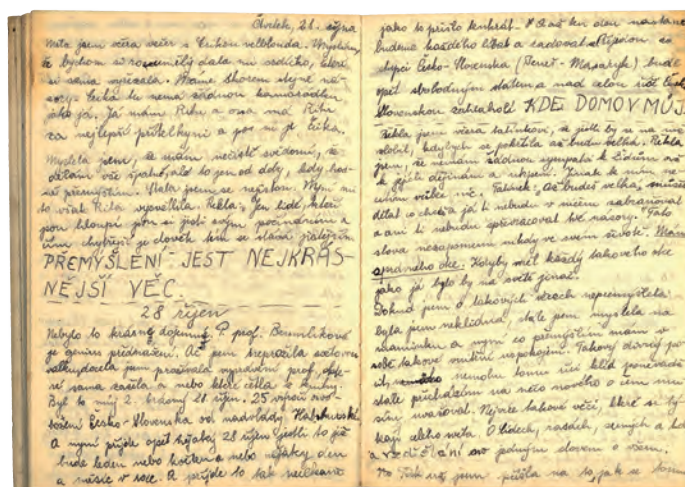 Čtvrtek, 21. října
Měla jsem včera večer s Čičkou velblouda. Myslím,
že bychom si rozuměly dala mi srdíčko, které
si sama vyřezala. Máme skorem stejné ná-
zory. Čička tu nemá žádnou kamarádku
jako já. Já mám Ritu a ona má Ritu
za nejlepší přítelkyni a pro ni je Čička.
Myslela jsem, že mám nečisté svědomí, že
dělám vše špatně, ale to jen od doby, kdy hod-
ně přemýšlím. Stala jsem se nejistou. Nyní mi
to však Rita vysvětlila. Řekla: Jen lidé, kteří
jsou hloupí jsou si jistí svým počínáním a
čím chytřejší je člověk tím se stává jistějším
PŘEMÝŠLENÍ JEST NEJKRÁS-
NĚJŠÍ VĚC.
28 říjen
Nebylo to krásné, dojemné. P. prof.
je genius přednášení. Ač jsem neprožila
jsem prožívala vyprávění prof.,
sama zažila a nebo které četla z knihy.
Byl to můj 2. krásný 28. říjen. 25 výročí osvo-
bození Česko-Slovenska od nadvlády Habsburské
A nyní přijde opět nějaký 28 říjen (jestli to již
bude leden nebo květen a nebo nějaký den
a měsíc v roce. A přijde to tak nečekaně
jako to přišlo tenkrát. A až ten den nastane
budeme každého líbat a radovat se. Připijem na
chyci Česko-Slovenska (Beneš - Masaryk) bude
opět svobodným státem a nad celou říší Česko
Slovenskou zahlaholí KDE DOMOV MŮJ.
Řekla jsem včera tatínkovi, že jestli by se na mě
zlobil, kdybych se pokřtila až budu velká. Řekla
jsem, že nemám žádnou sympatii k Židům ani
k jejich dějinám a utrpení. Jinak k nim ne-
cítím vůbec nic. Tatínek: „Až budeš velká, můžeš
dělat co chceš a já ti nebudu v ničem zabraňovat
a ani ti nebudu zpřevracovat tvé názory. Tato
slova nezapomenu nikdy ve svém životě. Mám
správného otce. Kdyby měl každý takového otce
jako já bylo by na světě jinač.
Dokud jsem o takových věcech nepřemýšlela
byla jsem neklidná, stále jsem myslela na
maminku a nyní co přemýšlím mám v
sobě takové vnitřní uspokojení. Takový divný po-
cit, nemohu tomu říci klid poněvadž
stále přicházím na něco nového o čem mu-
sím uvažovat. Nejvíce takové věci, které se tý-
kají celého světa. O lidech, rasách, zemích a
a vzdělání no jedním slovem o všem.
No Teď už jsem přišla na to, jak se tomu